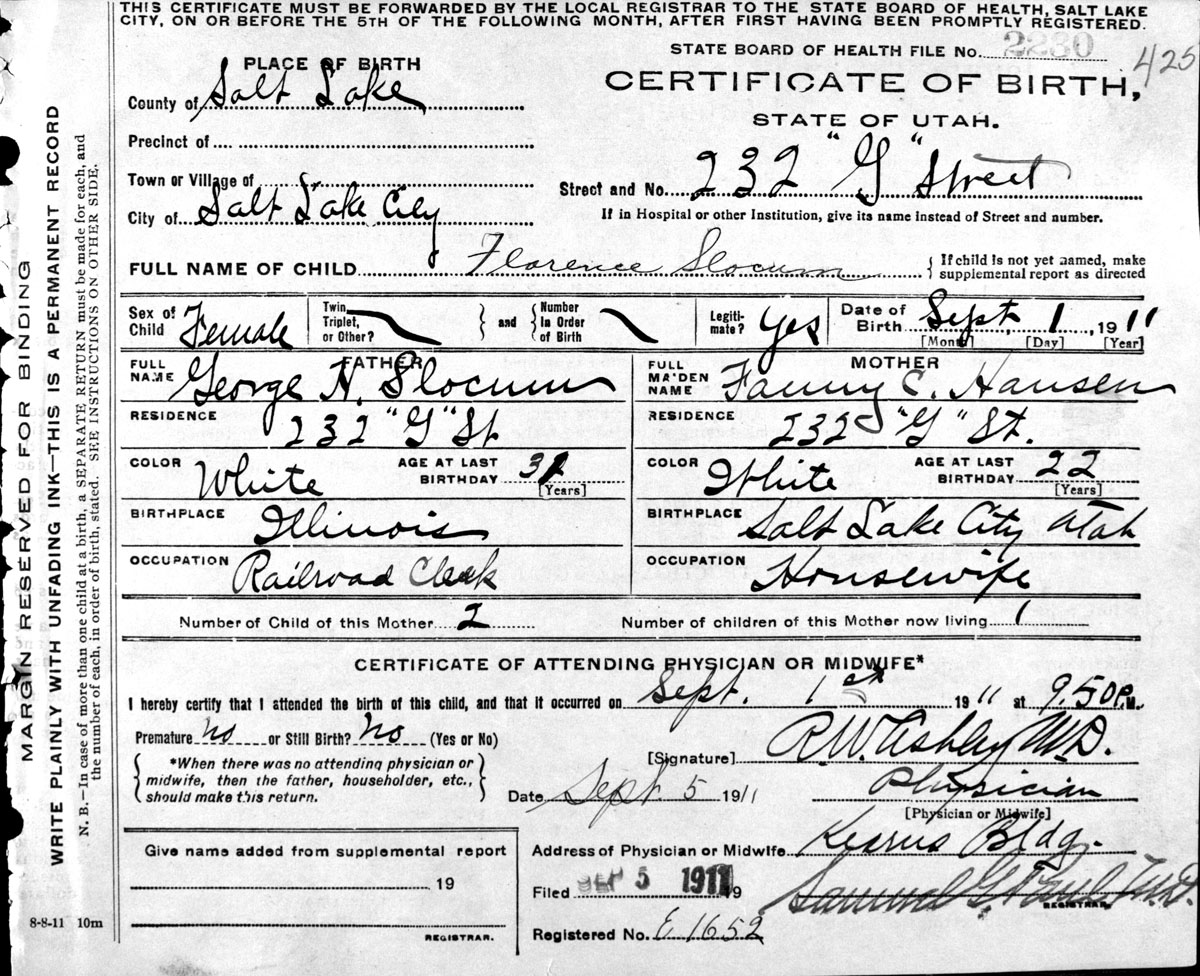 THIS CERTIFICATE MUST BE FORWARDED BY THE LOCAL REGISTRAR TO THE STATE BOARD OF HEALTH, SALT LAKE
CITY, ON OR BEFORE THE 5TH OF THE FOLLOWING MONTH, AFTER FIRST HAVING BEEN PROMPTLY REGISTERED.
STATE BOARD OF HEALTH FILE No. 2280 425
PLACE OF BIRTH
CERTIFICATE OF BIRTH,
County of Salt Lake
STATE OF UTAH.
Precinct of
Town or Village of
Street and No. 232 "G" Street
City of Salt Lake City
If in Hospital or other Institution, give its name instead of Street and number.
FULL NAME OF CHILD Florence Slocum { If child is not yet named, make
supplemental report as directed
Sex of Child Female Twin, Triplet, or Other? } and { Number In Order of Birth Legiti-mate? Yes Date of Birth Sept. 1, 1911
[Month] [Day] [Year]
FATHER MOTHER
FULL NAME George H. Slocum FULL MAIDEN NAME Fanny C. Hansen
RESIDENCE 232 "G" St RESIDENCE 232 "G" St.
COLOR White AGE AT LAST BIRTHDAY [Years] COLOR White AGE AT LAST BIRTHDAY 22 [Years]
BIRTHPLACE Illinois BIRTHPLACE Salt Lake City Utah
OCCUPATION Railroad Clerk OCCUPATION Housewife
Number of Child of this Mother 2 Number of children of this Mother now living 1
CERTIFICATE OF ATTENDING PHYSICIAN OR MIDWIFE*
I hereby certify that I attended the birth of this child, and that it occurred on Sept. 1st 1911 at 9.50 P.M.
Premature no or Still Birth? no (Yes or No)
[Signature] R.W. Ashley M.D.
{ *When there was no attending physician or
midwife, then the father, householder, etc.,
should make this return. }
Date Sept. 5 1911 Physician
[Physician or Midwife]
Give name added from supplemental report
Address of Physician or Midwife Kearns Bldg.
19
Filed SEP 5 1911 19 Samuel G. Paul M.D.
REGISTRAR.
Registered No. E 1652
REGISTRAR.
8-8-11 10m
MARGIN RESERVED FOR BINDING
WRITE PLAINLY WITH UNFADING INK—THIS IS A PERMANENT RECORD
N. B.—In case of more than one child at a birth, a SEPARATE RETURN must be made for each, and
the number of each, in order of birth, stated. SEE INSTRUCTIONS ON OTHER SIDE.